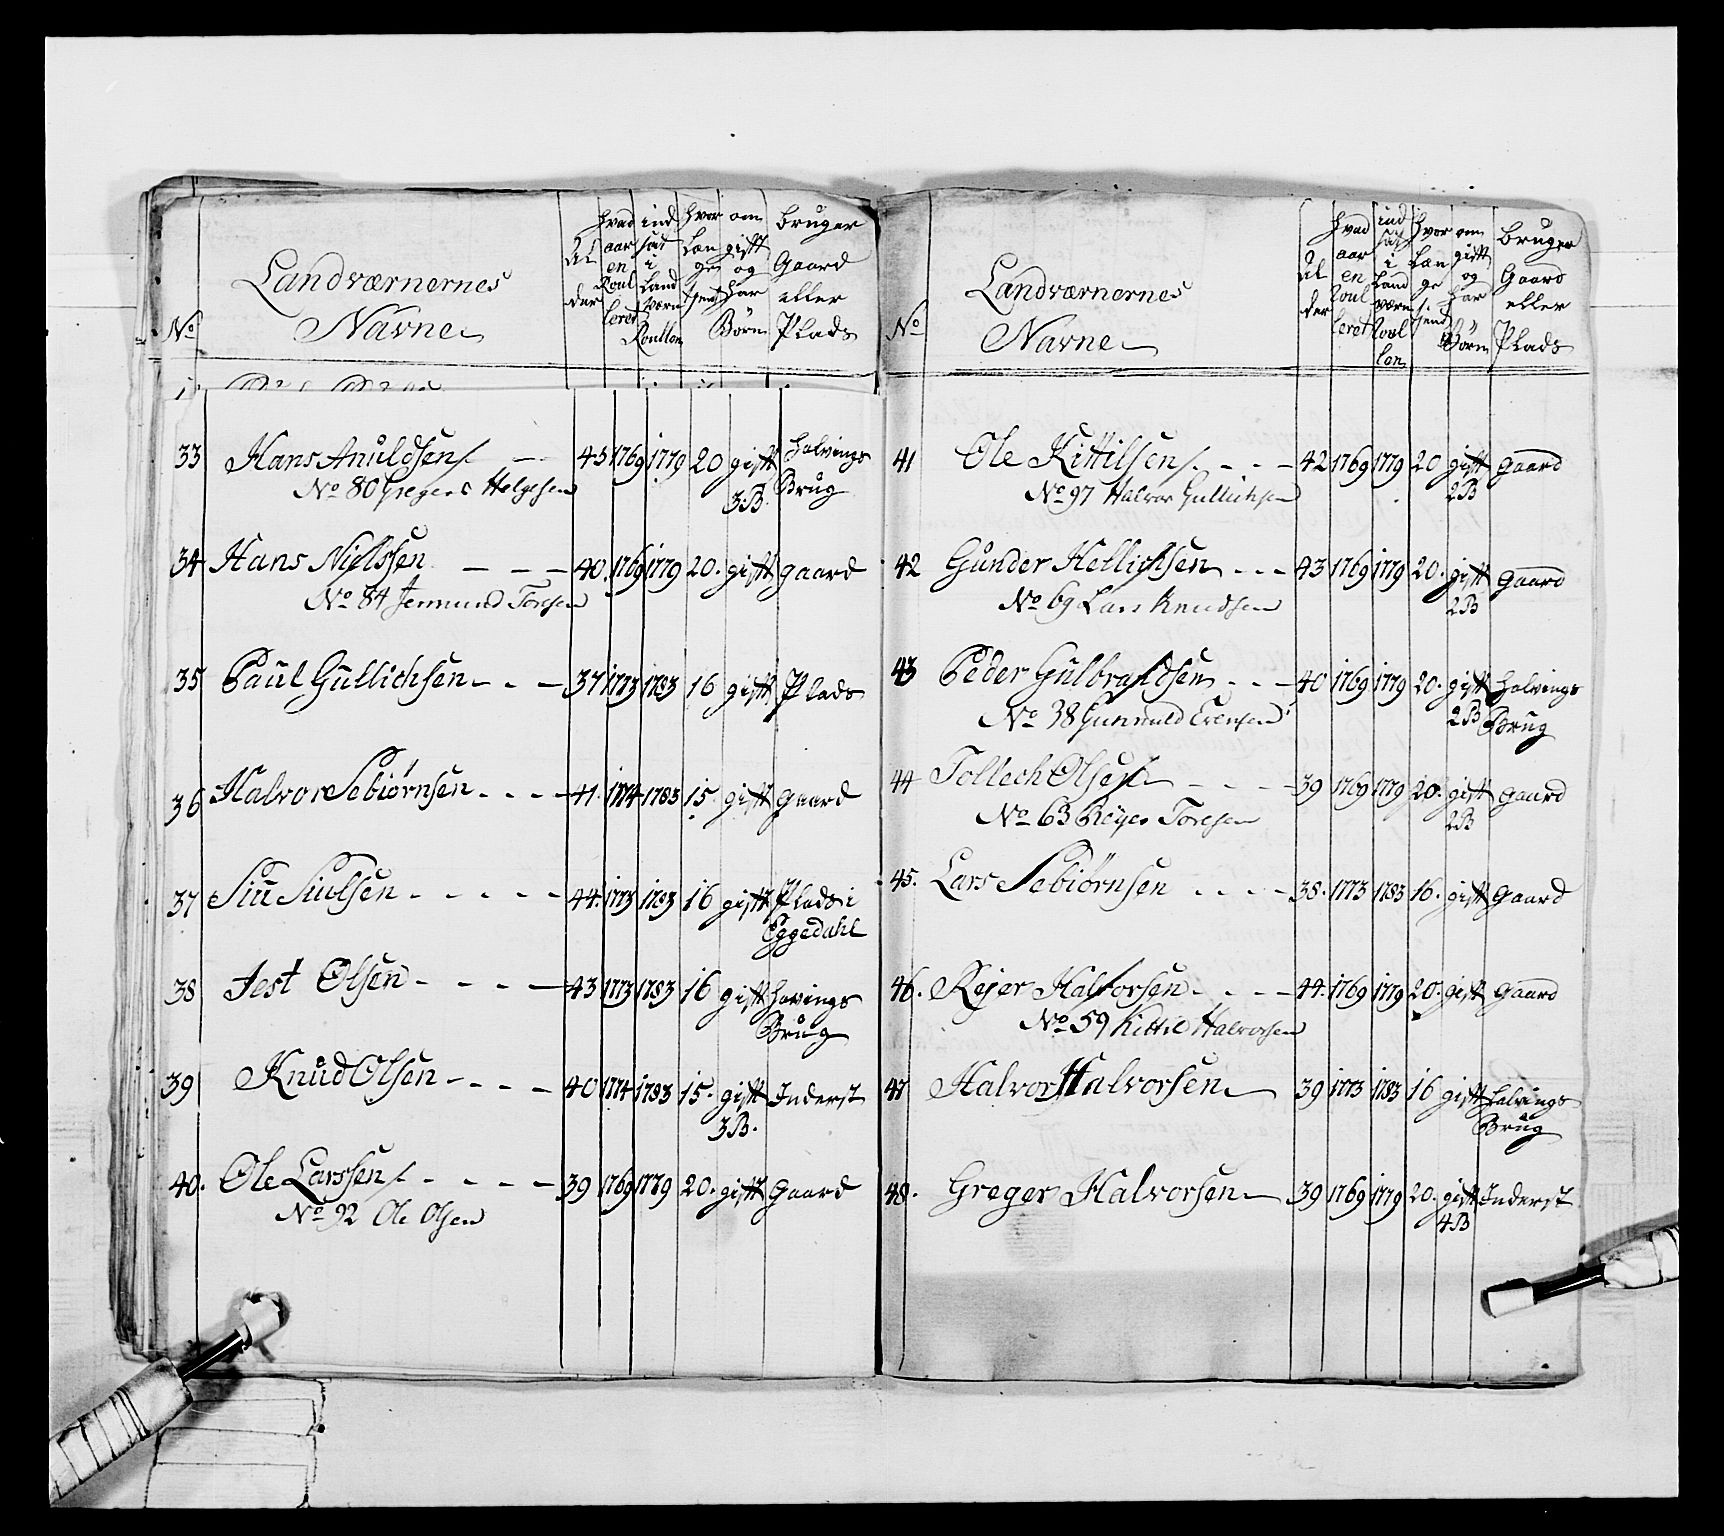 No
Landværnernes
Navne
Al
der
hvad
aar
en
Roul
leret
ind
sat
i
Land
værn
Roullen
hvor
Læn
ge
tjent
om
gift
og
har
Börn
bruger
Gaard
eller
Plads
33 Hans Anuldsen 45 1769 1779 20 gift halvings
3B. Brug
No 80 Gregers Helgesen
34 Hans Nielssen 40. 1769 1779 20. gift gaard
No 84 Jermund Toresen
35 Paul Gullichsen 37 1773 1783 16 gift Plads
36 Halvor Sebiörnsen 41. 1774 1783 15. gift gaard
37 Siu Siulsen 44. 1773 1783 16 gift Plads i
Eggedahl
38 Jest Olsen 43 1773 1783 16 gift havings
Brug
39 Knud Olsen 40 1774 1783 15. gift Inderst
3B.
40. Ole Larssen 39 1769 1779 20. gift Gaard
No 92 Ole Olsen
No
Landværnernes
Navne
Al
der
hvad
aar
en
Roul
leret
ind
sat
i
Land
værn
Roul
len
hvor
Læn
ge
tjent
om
gift
og
har
Börn
bruger
Gaard
eller
Plads
41 Ole Kittilsen 42 1769 1779 20 gift gaard
2B
No 97 Halvor Gullichsen
42 Gunder Hellichsen 43 1769 1779 20. gift gaard
2B
No 69 Lars Knudsen
43 Peder Gulbrandsen 40 1769 1779 20. gift halvings
2B Brug
No 38 Gunnuld Evensen
44 Tollech Olsen 39 1769 1779 20. gift gaard
2B
No 63 Reyer Toresen
45. Lars Sebiörnsen 38. 1773 1783 16. gift gaard
46. Rejer Halvorsen 44. 1769 1779 20. gift Gaard
No 59 Kittil Halvorsen
47 Halvor Halvorsen 39 1773 1783 16 gift halvings
Brug
48. Greger Halvorsen 39 1769 1779 20. gift Inderst
4B